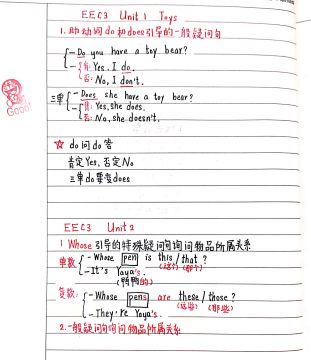 EEC3 Unit 1 Toys
1. 助动词do和does引导的一般疑问句
- Do you have a toy bear?
- 肯: Yes, I do.
否: No, I don't.
三单 - Does she have a toy bear?
- 肯: Yes, she does.
否: No, she doesn't.
Good!
☆ do问do答
肯定Yes, 否定No
三单do要变does
EEC3 Unit 2
1 Whose引导的特殊疑问句询问物品所属关系
单数 - Whose pen is this / that?
(这个) (那个)
- It's Yaya's.
(鸭鸭的)
复数: - Whose pens are these / those?
(这些) (那些)
- They're Yaya's.
2. 一般疑问句询问物品所属关系